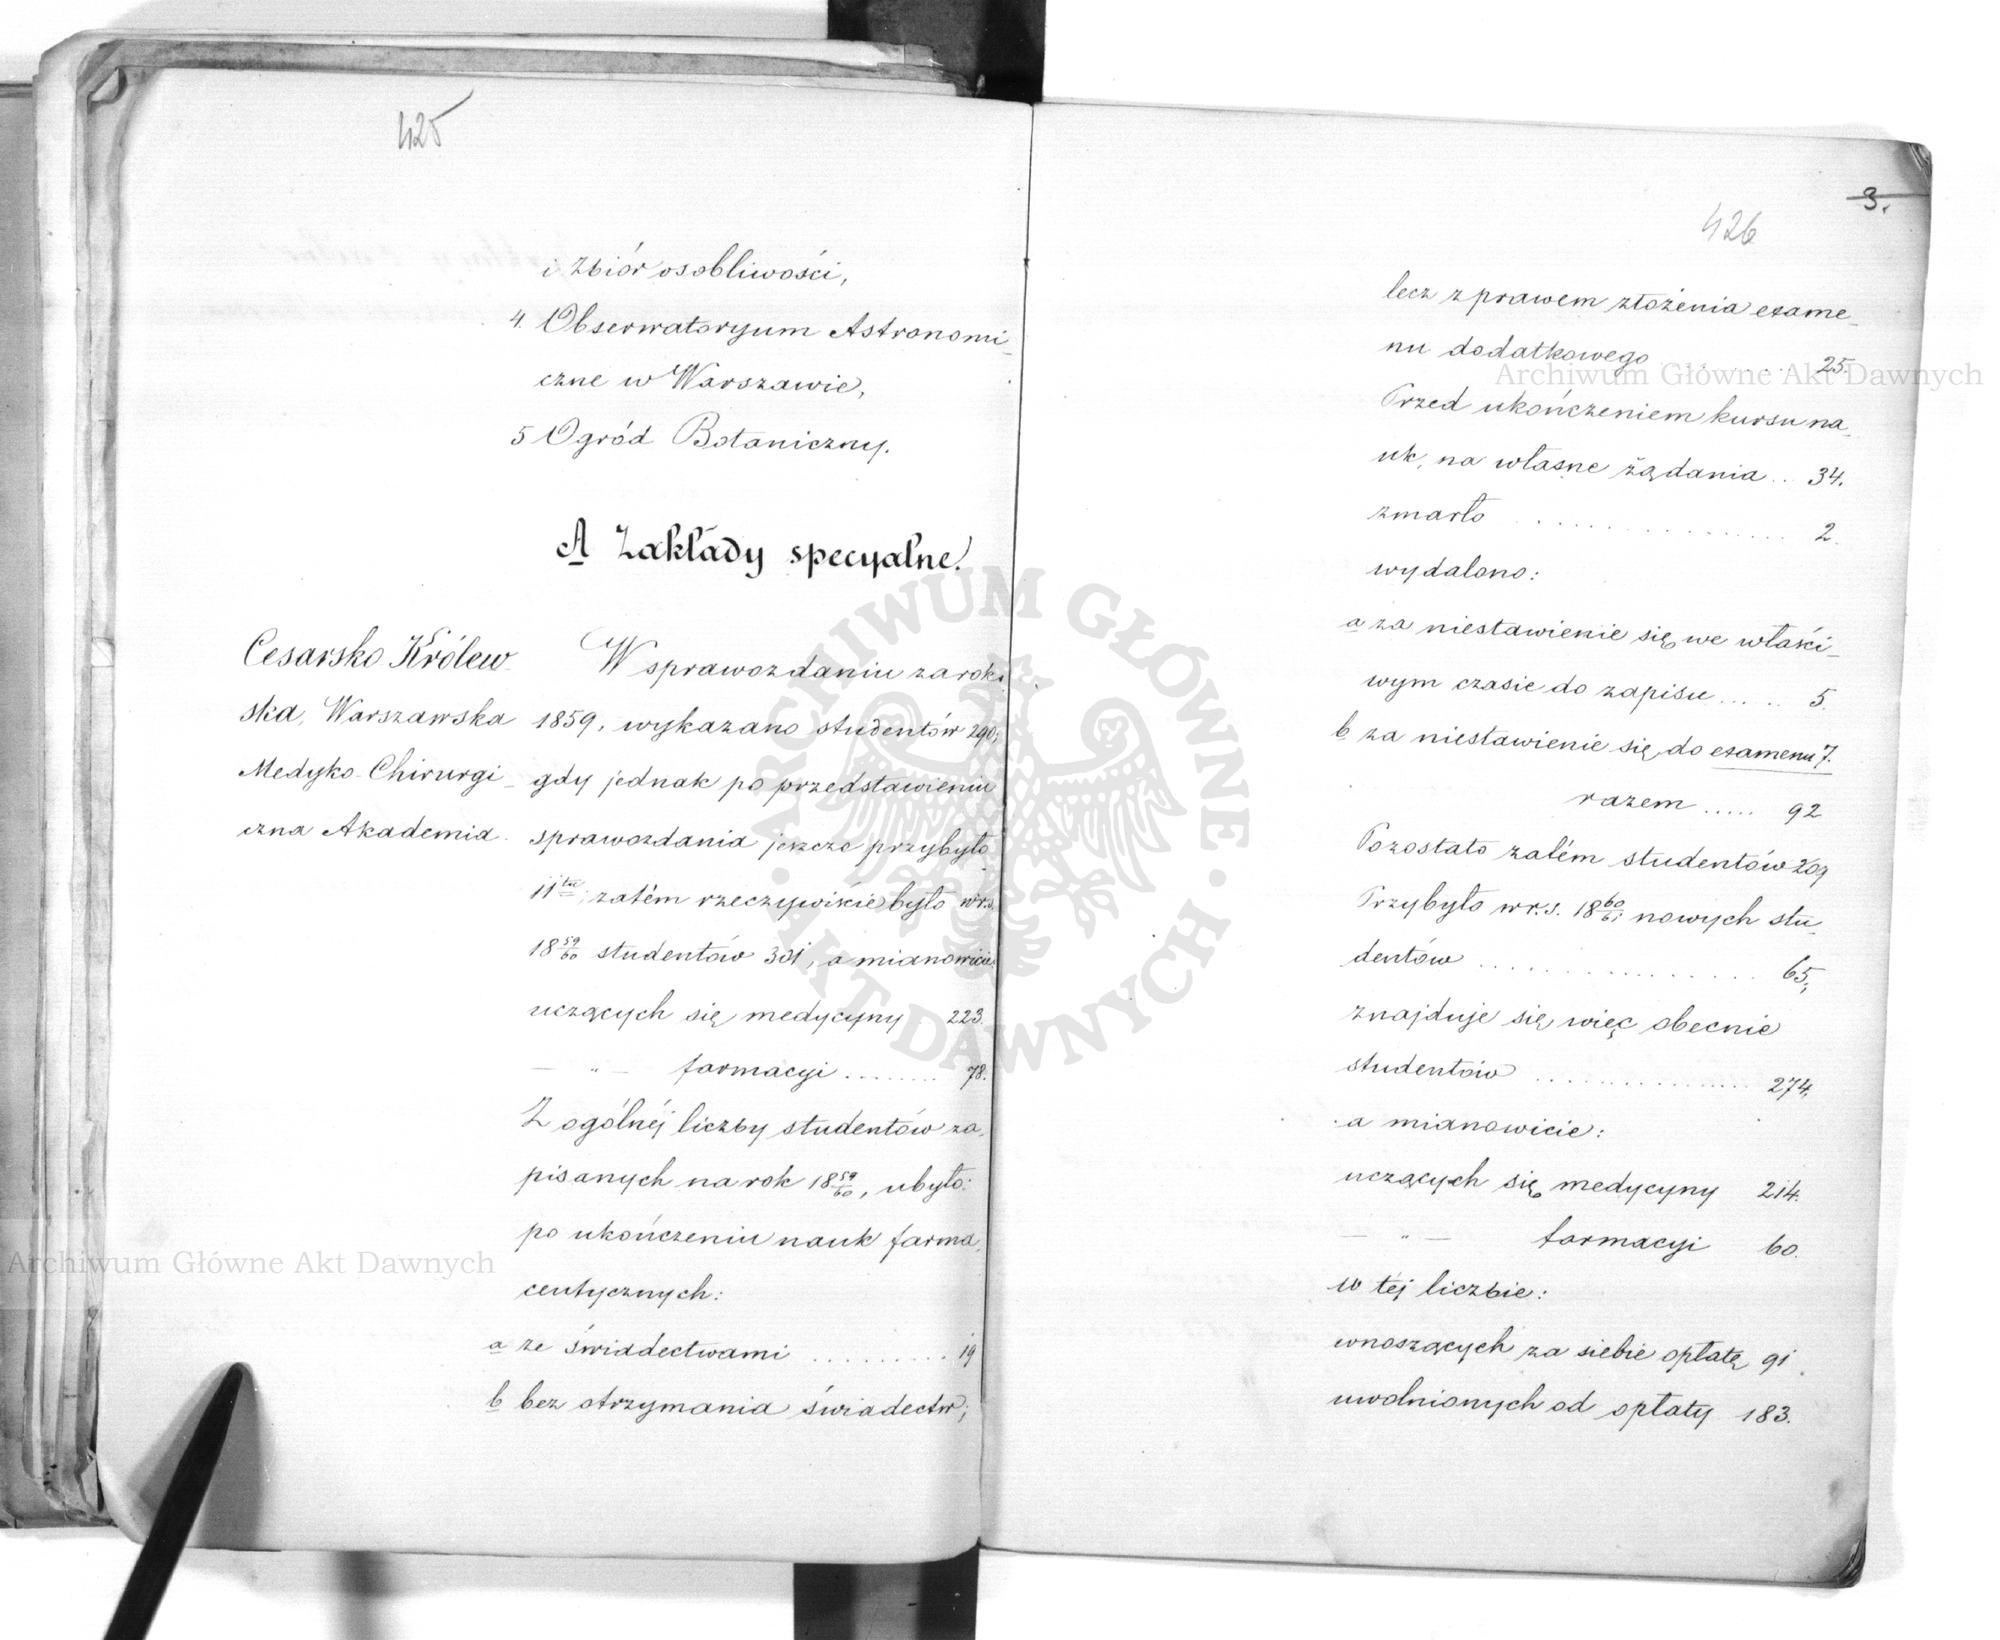 425
i zbiór osobliwości,
4. Obserwatoryum Astronomi-
czne w Warszawie,
5 Ogród Botaniczny.
A Zakłady specyalne.
Cesarsko Królew-
ska, Warszawska
Medyko-Chirurgi-
czna Akademia.
W sprawozdaniu za rok
1859, wykazano studentów 290;
gdy jednak po przedstawieniu
sprawozdania jeszcze przybyło
11tu; zatém rzeczywiście było w r.s.
18 59/60 studentów 301, a mianowicie:
uczących się medycyny 223.
— " — farmacyi ........ 78.
Z ogólnéj liczby studentów za-
pisanych na rok 18 59/60, ubyło:
po ukończeniu nauk farma-
ceutycznych:
a ze świadectwami ......... 19
b bez otrzymania świadectw;
3.
426
lecz z prawem złożenia exame-
nu dodatkowego ....... 25.
Przed ukończeniem kursu na-
uk, na własne żądania .. 34.
zmarło ................ 2.
wydalono:
a za niestawienie się we właści-
wym czasie do zapisu ..... 5.
b za niestawienie się do examenu 7.
razem ..... 92
Pozostało zatém studentów 209
Przybyło w r.s. 18 60/61 nowych stu-
dentów ................ 65;
znajduje się więc obecnie
studentów ............... 274.
a mianowicie:
uczących się medycyny 214.
— " — farmacyi 60.
w téj liczbie:
wnoszących za siebie opłatę 91.
uwolnionych od opłaty 183.
Archiwum Główne Akt Dawnych
Archiwum Główne Akt Dawnych
ARCHIWUM GŁÓWNE · AKT DAWNYCH ·